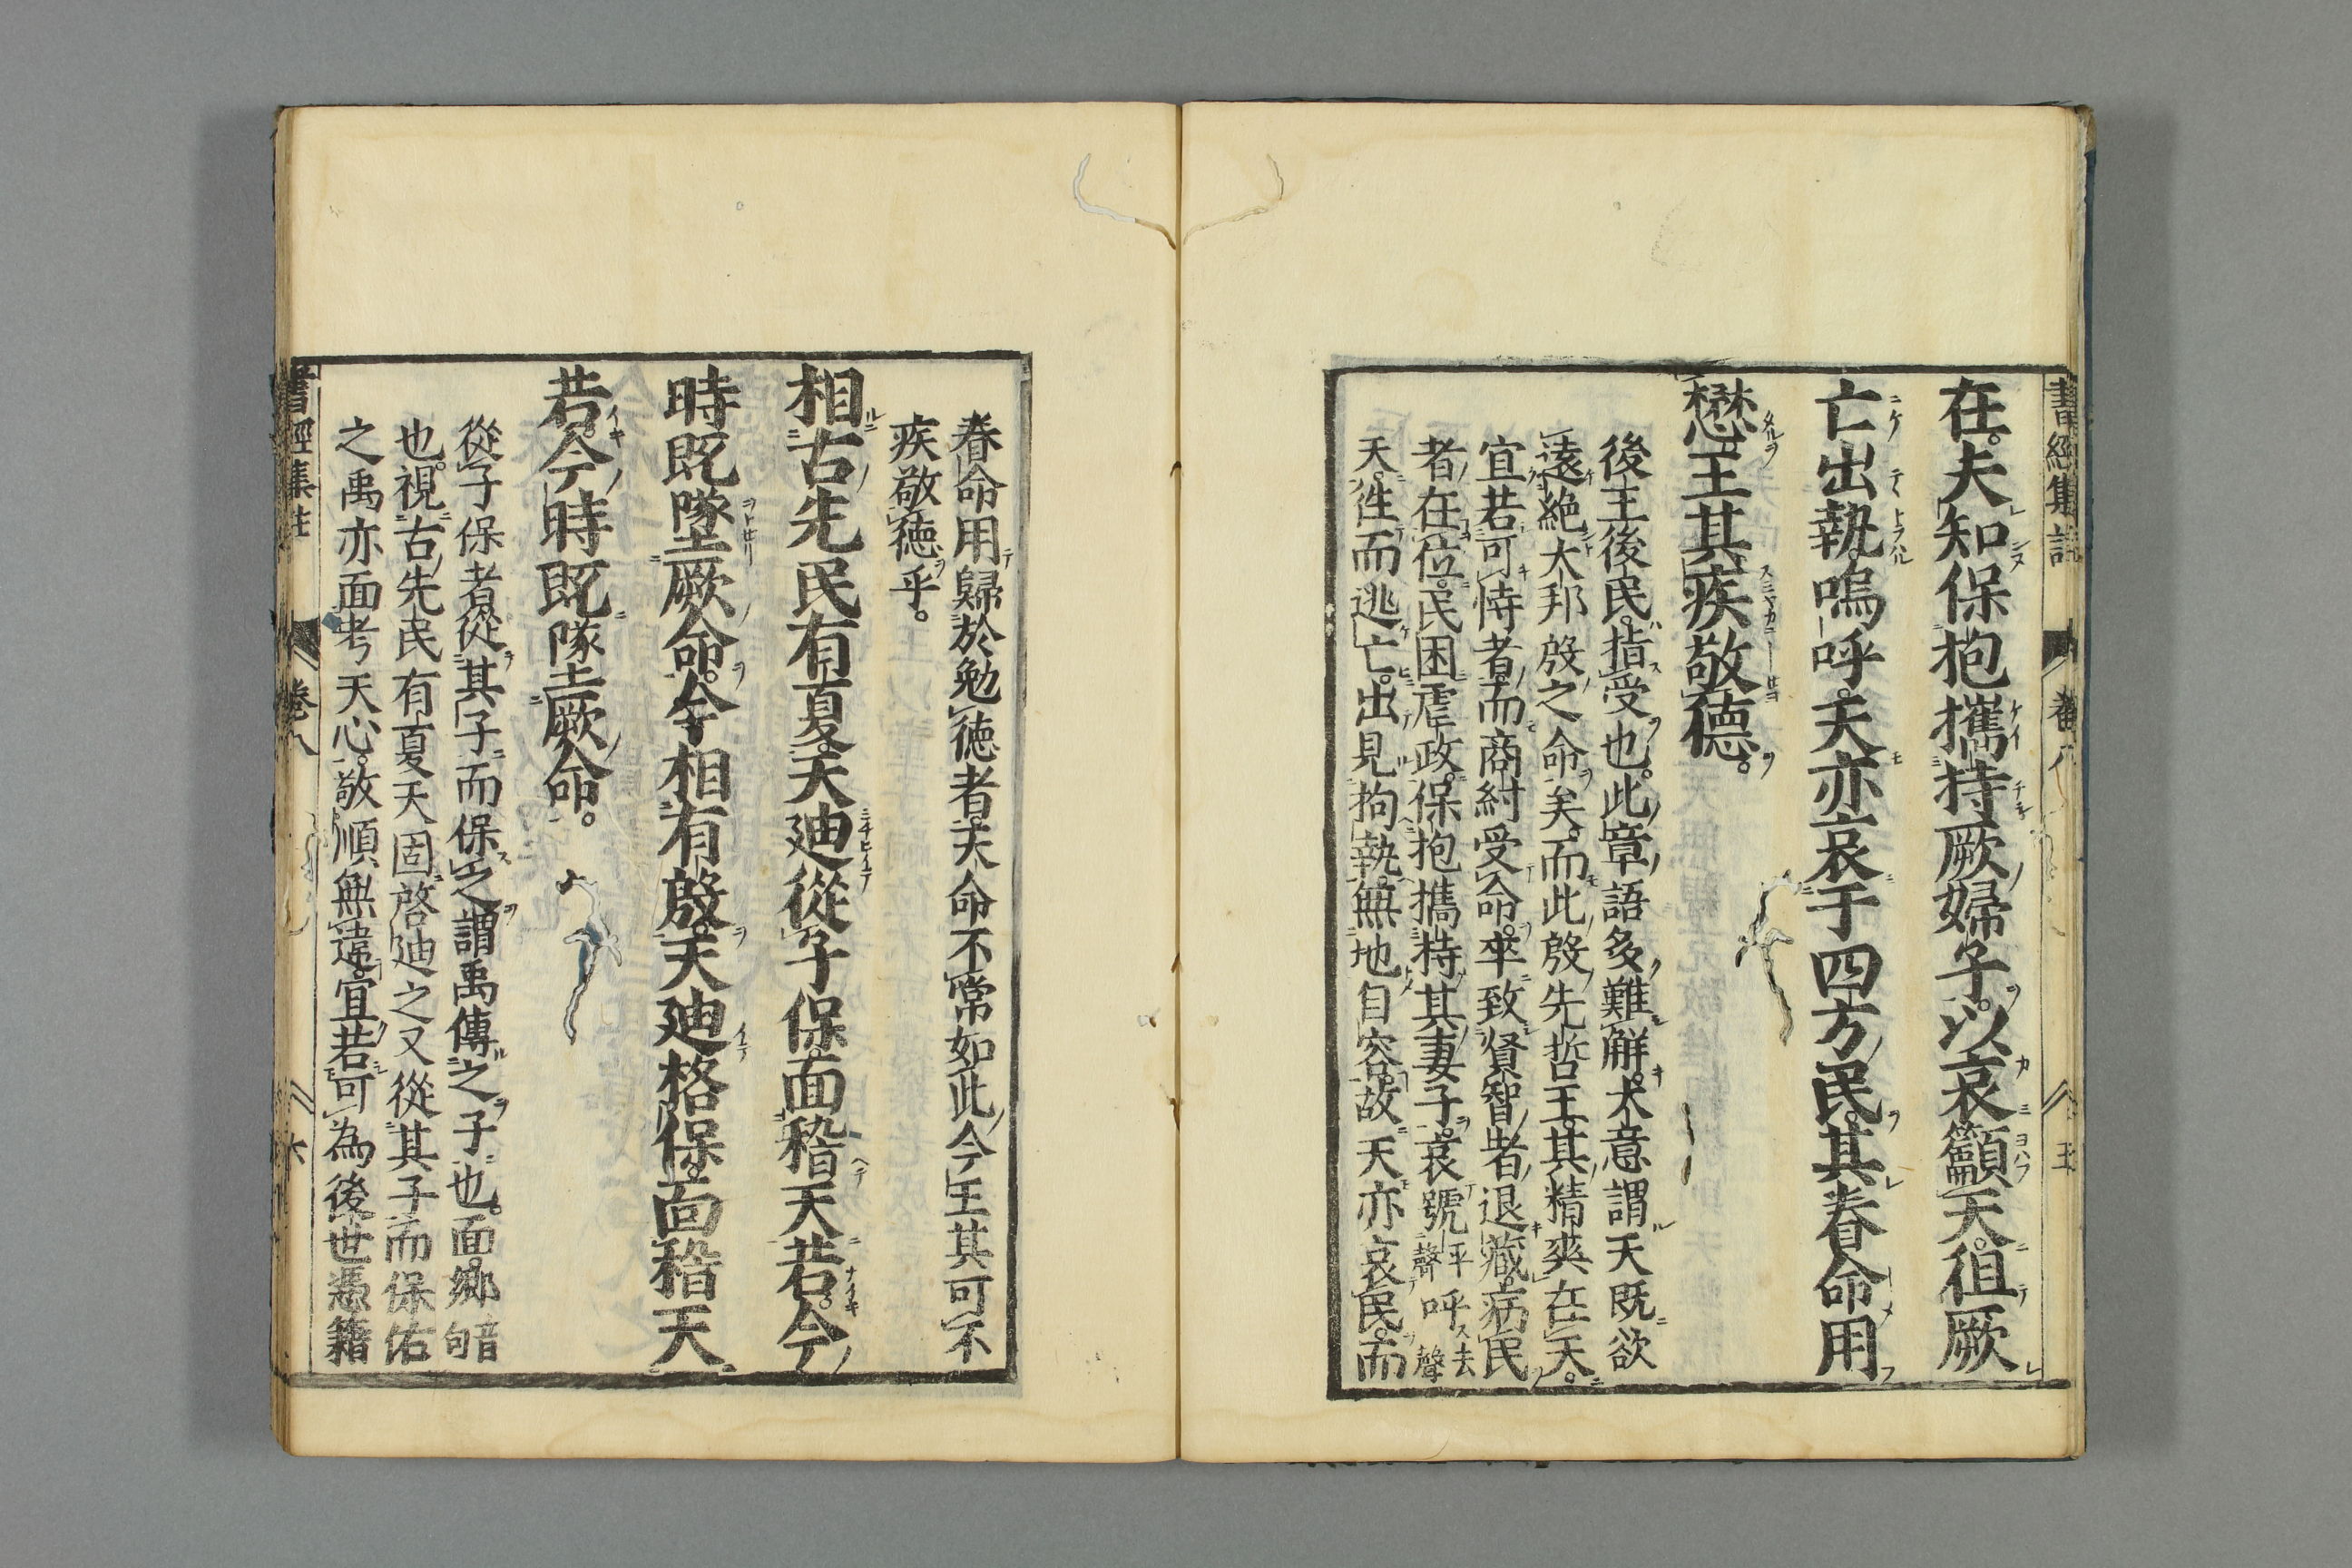 書經集註 卷八 五
在。夫知保抱攜持厥婦子。以哀籲天。徂厥
亡出執。嗚呼。天亦哀于四方民。其眷命用
懋。王其疾敬德。
後王後民。指受也。此章語多難解。大意謂天既欲
遠絶大邦殷之命矣。而此殷先哲王。其精爽在天。
宜若可恃者。而商紂受命。卒致賢智者退藏。病民
者在位。民困虐政。保抱攜持其妻子。哀號平聲呼去聲
天。徃而逃亡。出見拘執。無地自容。故天亦哀民。而
眷命用歸於勉德者。天命不常如此。今王其可不
疾敬德乎。
相古先民有夏。天迪從子保。面稽天若。今
時既墜厥命。今相有殷。天迪格保。面稽天
若。今時既墜厥命。
從子保者。從其子而保之。謂禹傳之子也。面。鄉音向
也。視古先民有夏。天固啓迪之。又從其子而保佑
之。禹亦面考天心。敬順無違。宜若可為後世憑藉
書經集註 卷八 六